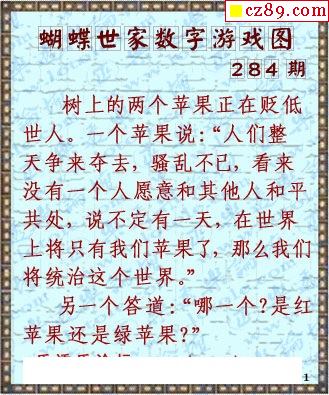 cz89.com
蝴蝶世家数字游戏图
284期
树上的两个苹果正在贬低
世人。一个苹果说：“人们整
天争来夺去，骚乱不已，看来
没有一个人愿意和其他人和平
共处，说不定有一天，在世界
上将只有我们苹果了，那么我们
将统治这个世界。”
另一个答道：“哪一个？是红
苹果还是绿苹果？”
1